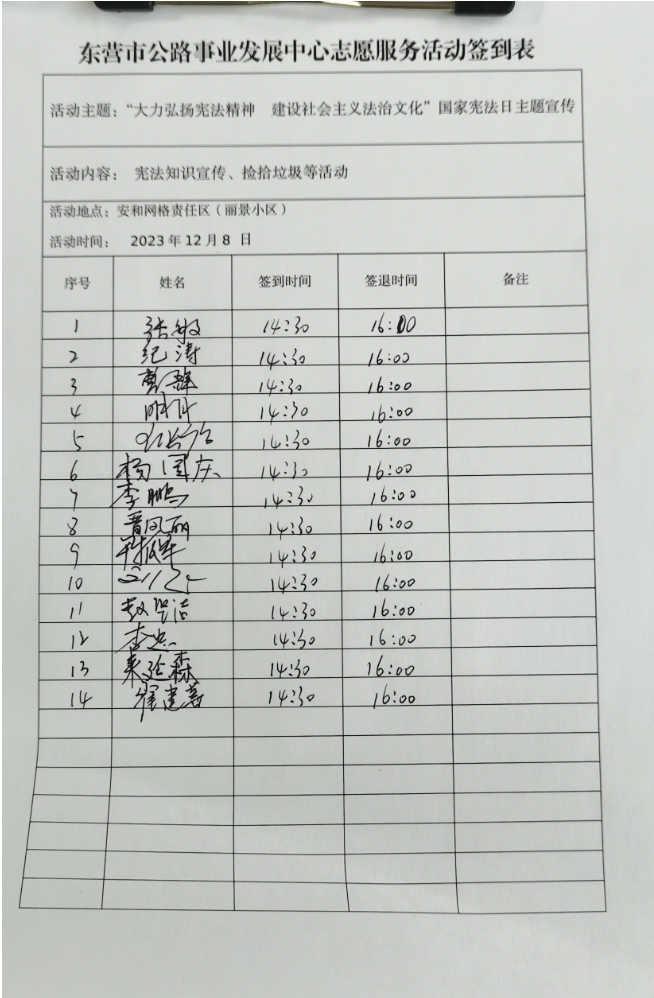 东营市公路事业发展中心志愿服务活动签到表
活动主题：“大力弘扬宪法精神　建设社会主义法治文化”国家宪法日主题宣传
活动内容： 宪法知识宣传、捡拾垃圾等活动
活动地点：安和网格责任区（丽景小区）
活动时间： 2023年12月8日
序号 姓名 签到时间 签退时间 备注
1 张敏 14:30 16:00
2 纪涛 14:30 16:00
3 14:30 16:00
4 14:30 16:00
5 14:30 16:00
6 杨国庆 14:30 16:00
7 李鹏 14:30 16:00
8 晋凤丽 14:30 16:00
9 14:30 16:00
10 14:30 16:00
11 14:30 16:00
12 14:30 16:00
13 森 14:30 16:00
14 崔建 14:30 16:00